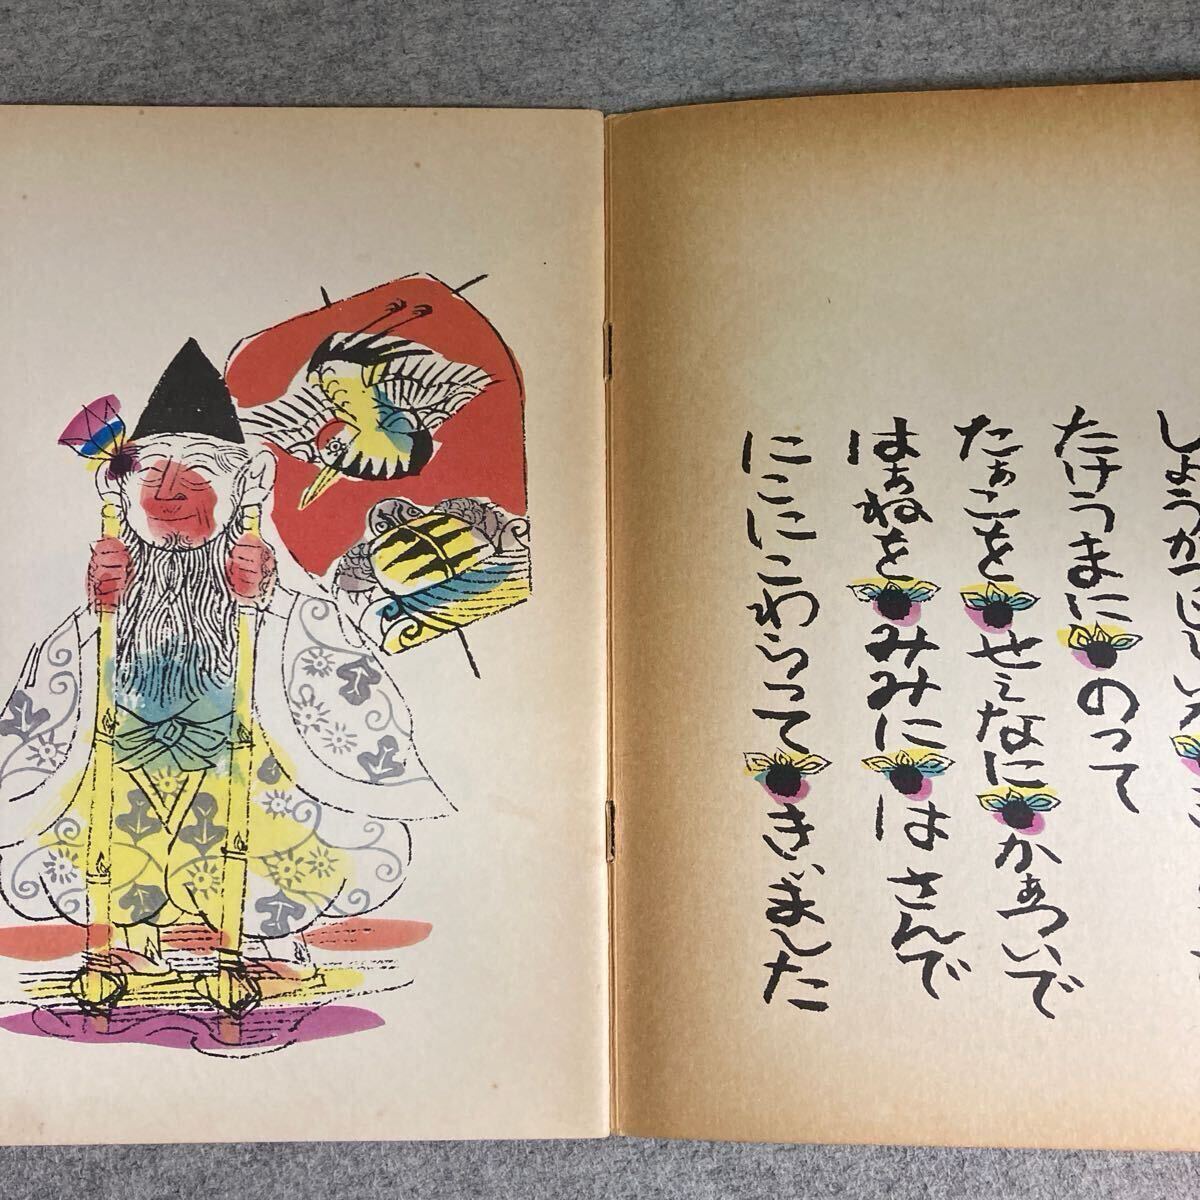 しょうがついいが
たけうまにのって
たぁこをせぇなにかぁついで
はぁねをみみにはさんで
にこにこわらってきいました